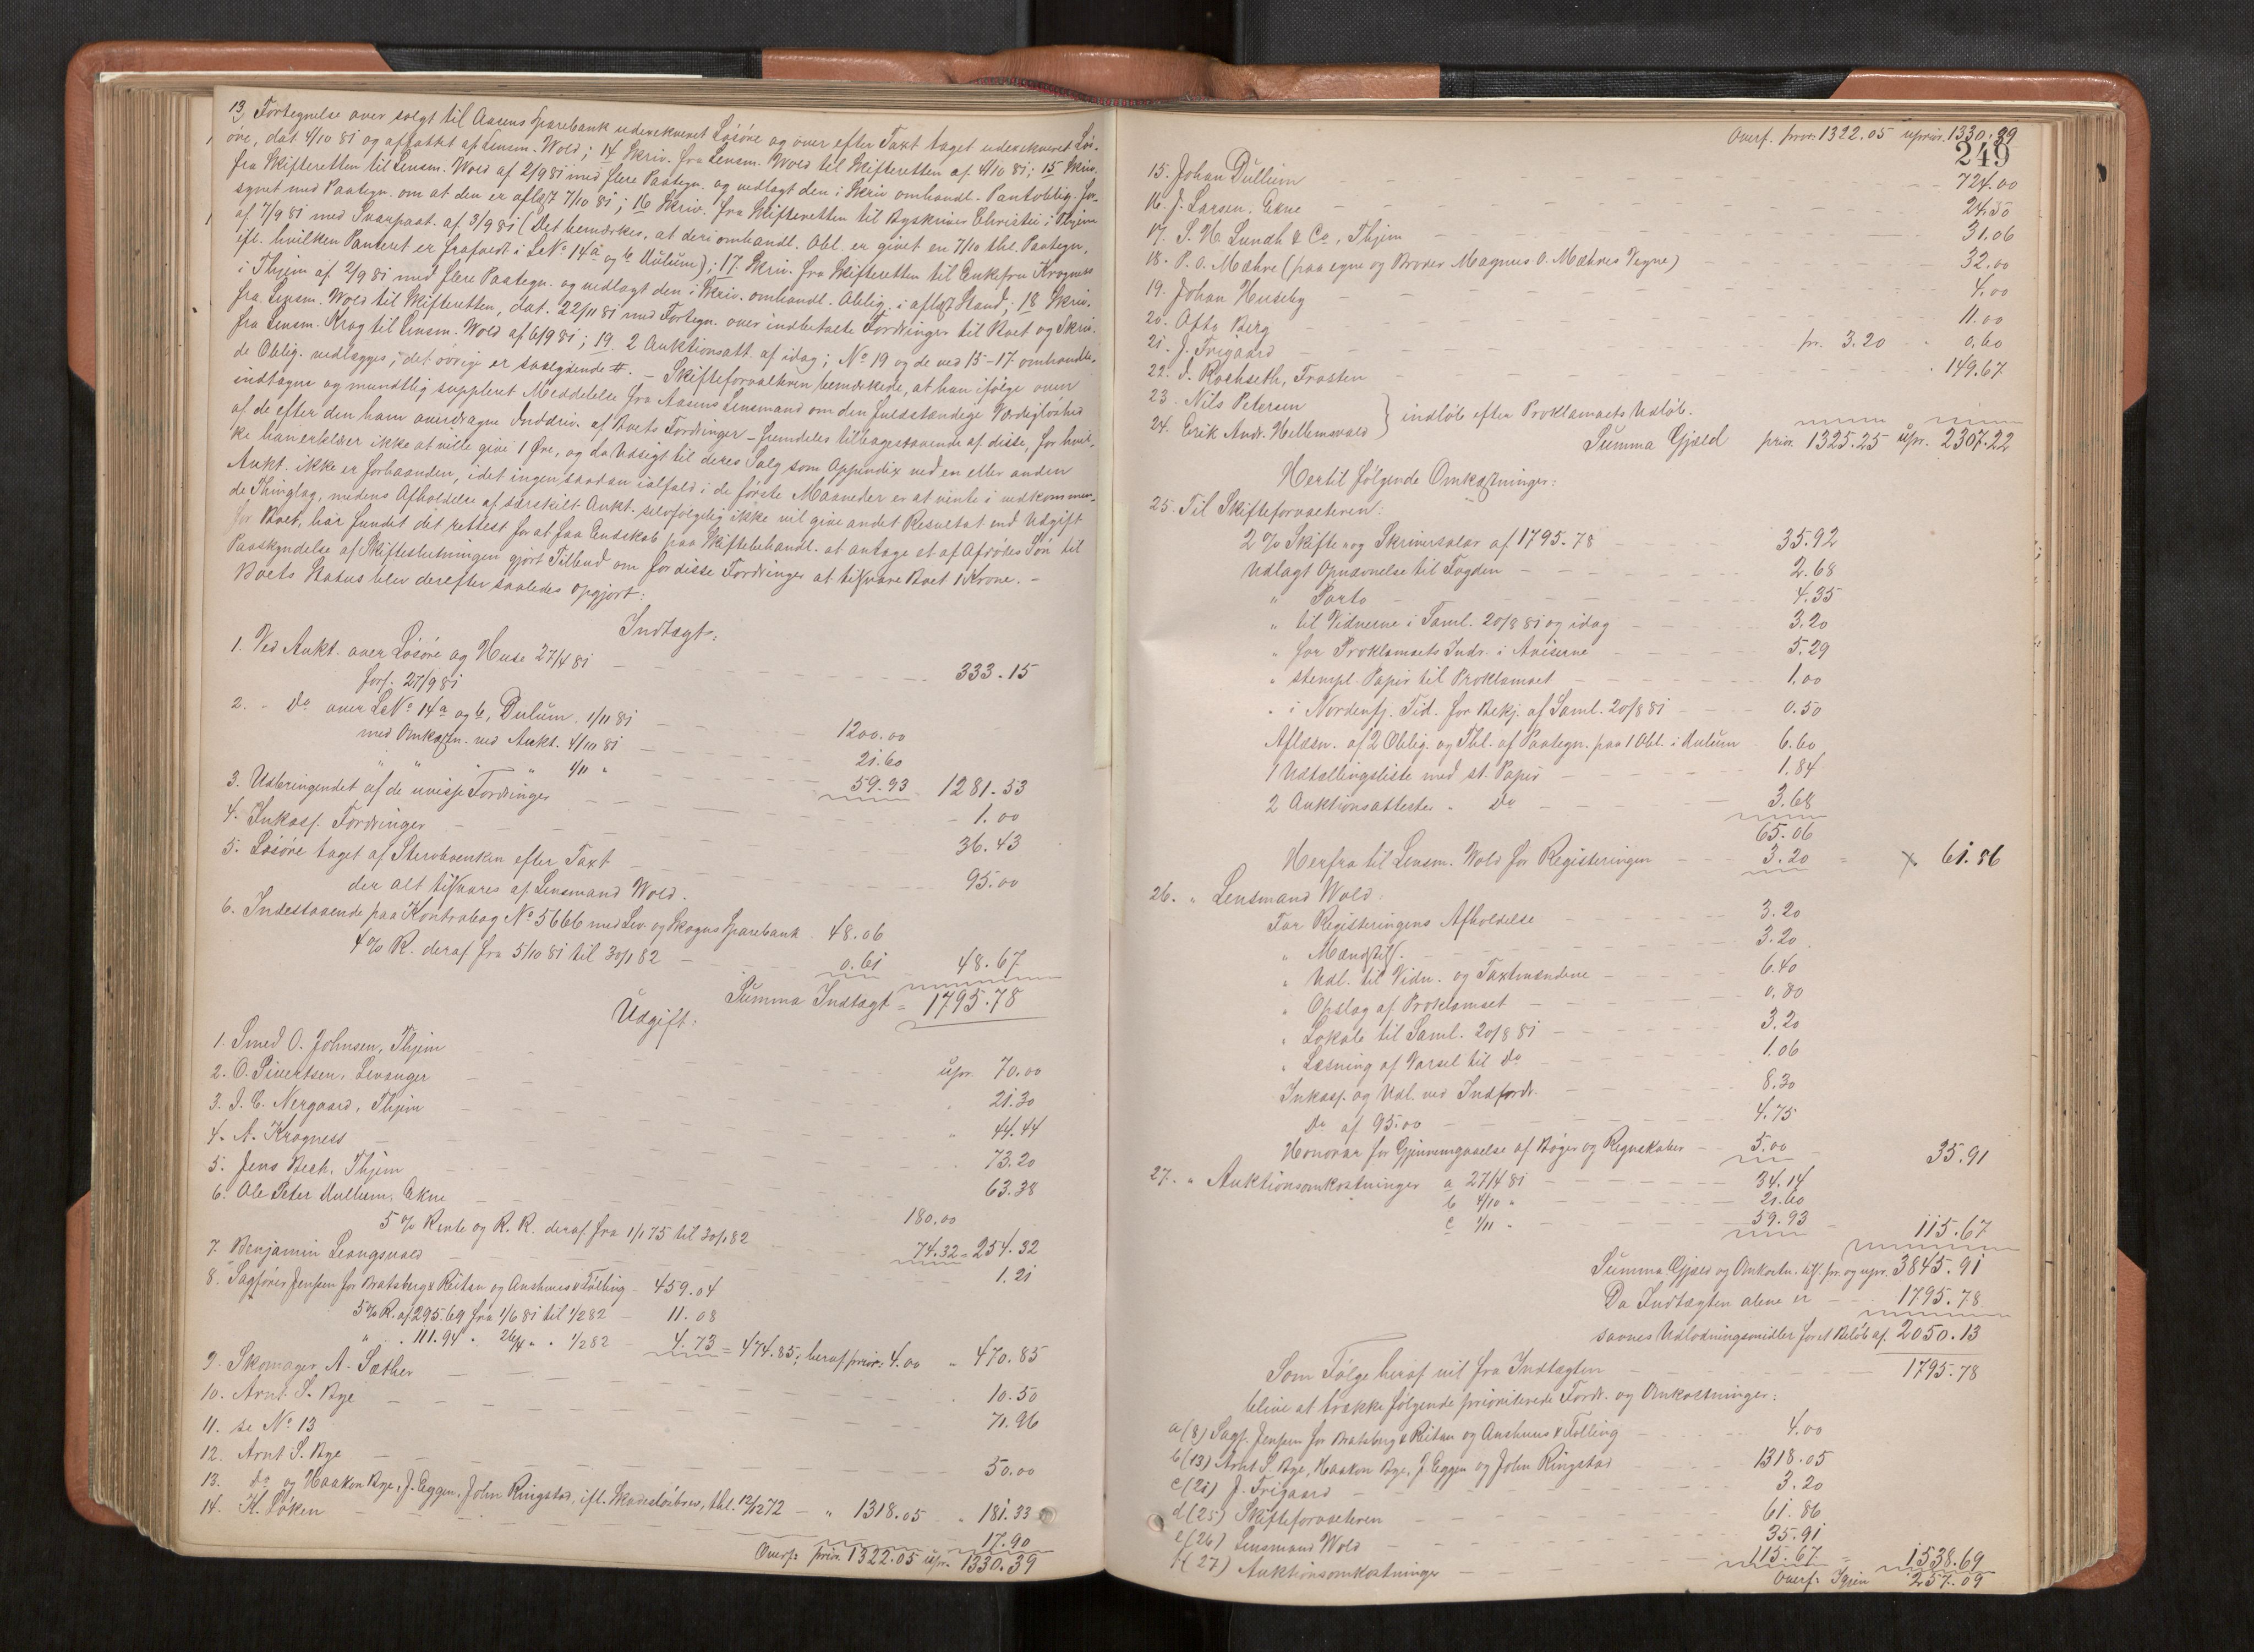 13, Fortegnelse over solgt til Aasens Sparebank udenekveret Løsøre og over efter Taxt taget udenekveret Løs-
øre, dat. 4/10 81 og affattet af Lensm. Wold; 14 Skriv. fra Lensm. Wold til Skifteretten af 4/10 81; 15 Skriv.
fra Skifteretten til Lensm. Wold af 2/9 81 med flere Paategn. og vedlagt den i Skriv omhandl. Pantoblig. for-
synet med Paategn. om at den er aflæst 7/10 81; 16 Skriv. fra Skifteretten til Byskriver Christie i Thjem
af 7/9 81 med Svarpaat. af 3/9 81 (Det bemærkes, at den i omhandl. Obl. er givet en 7/10 thl. Paategn.
ifl. hvilken Panteret er frafaldt i LNo 14a og b Dulum); 17 Skriv. fra Skifteretten til Enkefru Krogness
i Thjem af 2/9 81 med flere Paategn. og vedlagt den i Skriv. omhandl. Oblig. i aflæst Stand; 18 Skriv.
fra Lensm. Wold til Skifteretten, dat. 22/11 81 med Fortegn. over indbetalte Fordringer til Boet og Skriv.
fra Lensm. Krog til Lensm. Wold af 6/9 81; 19 2 Auktionsatt. af idag; No 19 og de ved 15-17 omhandle-
de Oblig. vedlægges, det øvrige er saalydende #. - Skifteforvalteren bemærkede, at han ifølge oven
indtagne og mundtlig suppleret Meddelelse fra Aasens Lensmand om den fuldstændige Værdiløshed
af de efter den ham overdragne Inddriv. af Boets Fordringer - fremdeles tilbagestaaende af disse, for hvil-
ke han erklærer ikke at ville give 1 Øre, og da Udsigt til deres Salg som Appendix ved en eller anden
Aukt. ikke er forhaanden, idet ingen saadan ialfald i de første Maaneder er at vente i vedkommen-
de Thinglag, medens Afholdelse af særskilt Aukt. selvfølgelig ikke vil give andet Resultat end Udgift
for Boet, har fundet det rettest for at faa Endskab paa Skiftebehandl. at antage et af Afdødes Søn til
Paaskyndelse af Skifteslutningen gjort Tilbud om for disse Fordringer at tilsvare Boet 1 Krone. -
Boets Status blev derefter saaledes opgjort:
Indtægt:
1. Ved Aukt. over Løsøre og Huse 27/4 81
forf. 27/9 81 333.15
2. " Do over LNo 14a og b, Dulum. 1/11 81 1200.00
med Omkostn. ved Aukt. 4/10 81 21.60
" " " 1/11 " 59.93 1281.53
3. Udbringendet af de uvisse Fordringer 1.00
4. Inkass. Fordringer 36.43
5. Løsøre taget af Stervboenken efter Taxt 95.00
der alt tilsvares af Lensmand Wold.
6. Indestaaende paa Kontrabog No 5666 med Lev. og Skogns Sparebank 48.06
4 % R. deraf fra 5/10 81 til 30/1 82 0.61 48.67
Summa Indtægt = 1795.78
Udgift:
1. Smed O. Johnsen, Thjem upr. 70.00
2. O. Sivertsen, Levanger 21.30
3. I. C. Nergaard, Thjem 44.44
4. A. Krogness 73.20
5. Jens Bech. Thjem 63.38
6. Ole Peter Mullum, Ekne 180.00
5 % Rente og R. R. deraf fra 1/1 75 til 30/1 82 74.32 = 254.32
7. Benjamin Leangsvald 1.21
8. Sagfører Jenssen for Bratsberg & Reitan og Aushuus & Følling 459.04
5 % R. af 295.69 fra 1/6 81 til 1/2 82 11.08
" " 111.94 " 26/4 " " 1/2 82 4.73 = 474.85; heraf prior. 4.00 " 470.85
9. Skomager A. Sæther 10.50
10. Arnt S. Bye 71.96
11. se No 13
12. Arnt S. Bye 50.00
13. Do og Haakon Bye, J. Eggen, John Ringstad, ifl. Skadesløsbrev, thl. 12/12 72 " 1318.05 " 181.33
14. K. Løken 17.90
Overf: prior. 1322.05 upr. 1330.39
Overf. prior. 1322.05 uprior. 1330.39
249
15. Johan Dullum 724.00
16. J. Larsen. Ekne 24.50
17. S. H. Lundh & Co, Thjem 31.06
18. P. O. Mæhre (paa egne og Broder Magnus O. Mæhres Vegne) 32.00
19. Johan Huseby 4.00
20. Otto Berg 11.00
21. J. Trigaard pr. 3.20 0.60
22. I. Rochseth, Frosten 149.67
23. Nils Petersen
24. Erik Andr. Hellemsvald } indløb efter Proklamaets Udløb.
Summa Gjæld prior. 1325.25 upr. 2307.22
Hertil følgende Omkostninger:
25. Til Skifteforvalteren:
2 % Skifte og Skriversalær af 1795.78 35.92
Udlagt Opnævnelse til Fogden 2.68
" Porto 4.35
" til Vidnerne i Saml. 20/8 81 og idag 3.20
" for Proklamaets Indr. i Aviserne 5.29
" stempl. Papir til Proklamaet 1.00
" i Nordenfj. Tid. for Bekj. af Saml. 20/8 81 0.50
Aflæsn. af 2 Oblig. og Thl. af Paategn. paa 1 Obl. i Dulum 6.60
1 Udtællingsliste med st. Papir 1.84
2 Auktionsattester " Do 3.68
65.06
Herfra til Lensm. Wold for Registeringen 3.20 = 61.86
26. " Lensmand Wold.
For Registeringens Afholdelse 3.20
" Mændstils. 3.20
" Udl. til Vidn. og Taxtmændene 6.40
" Opslag af Proklamaet 0.80
" Lokale til Saml. 20/8 81 3.20
" Læsning af Varsel til Do 1.06
Inkass. og Udl. ved Indfordr. 8.30
Do af 95.00 4.75
Honorar for Gjennemgaaelse af Bøger og Regnskaber 5.00 35.91
27. " Auktionsomkostninger a 27/4 81 34.14
b 4/10 " 21.60
c 1/11 " 59.93 115.67
Summa Gjæld og Omkostn. tils. pr. og upr. 3845.91
Da Indtægten alene er 1795.78
savnes Udlodningsmidler for et Beløb af 2050.13
Som Følge heraf vil fra Indtægten 1795.78
blive at trække følgende prioriterede Fordr. og Omkostninger:
a (8) Sagf. Jenssen for Bratsberg & Reitan og Aushuus & Følling 4.00
b (13) Arnt S. Bye, Haakon Bye, J. Eggen og John Ringstad 1318.05
c (21) J. Trigaard 3.20
d (25) Skifteforvalteren 61.86
e (26) Lensmand Wold 35.91
f (27) Auktionsomkostninger 115.67 = 1538.69
Overf: Igjen 257.09